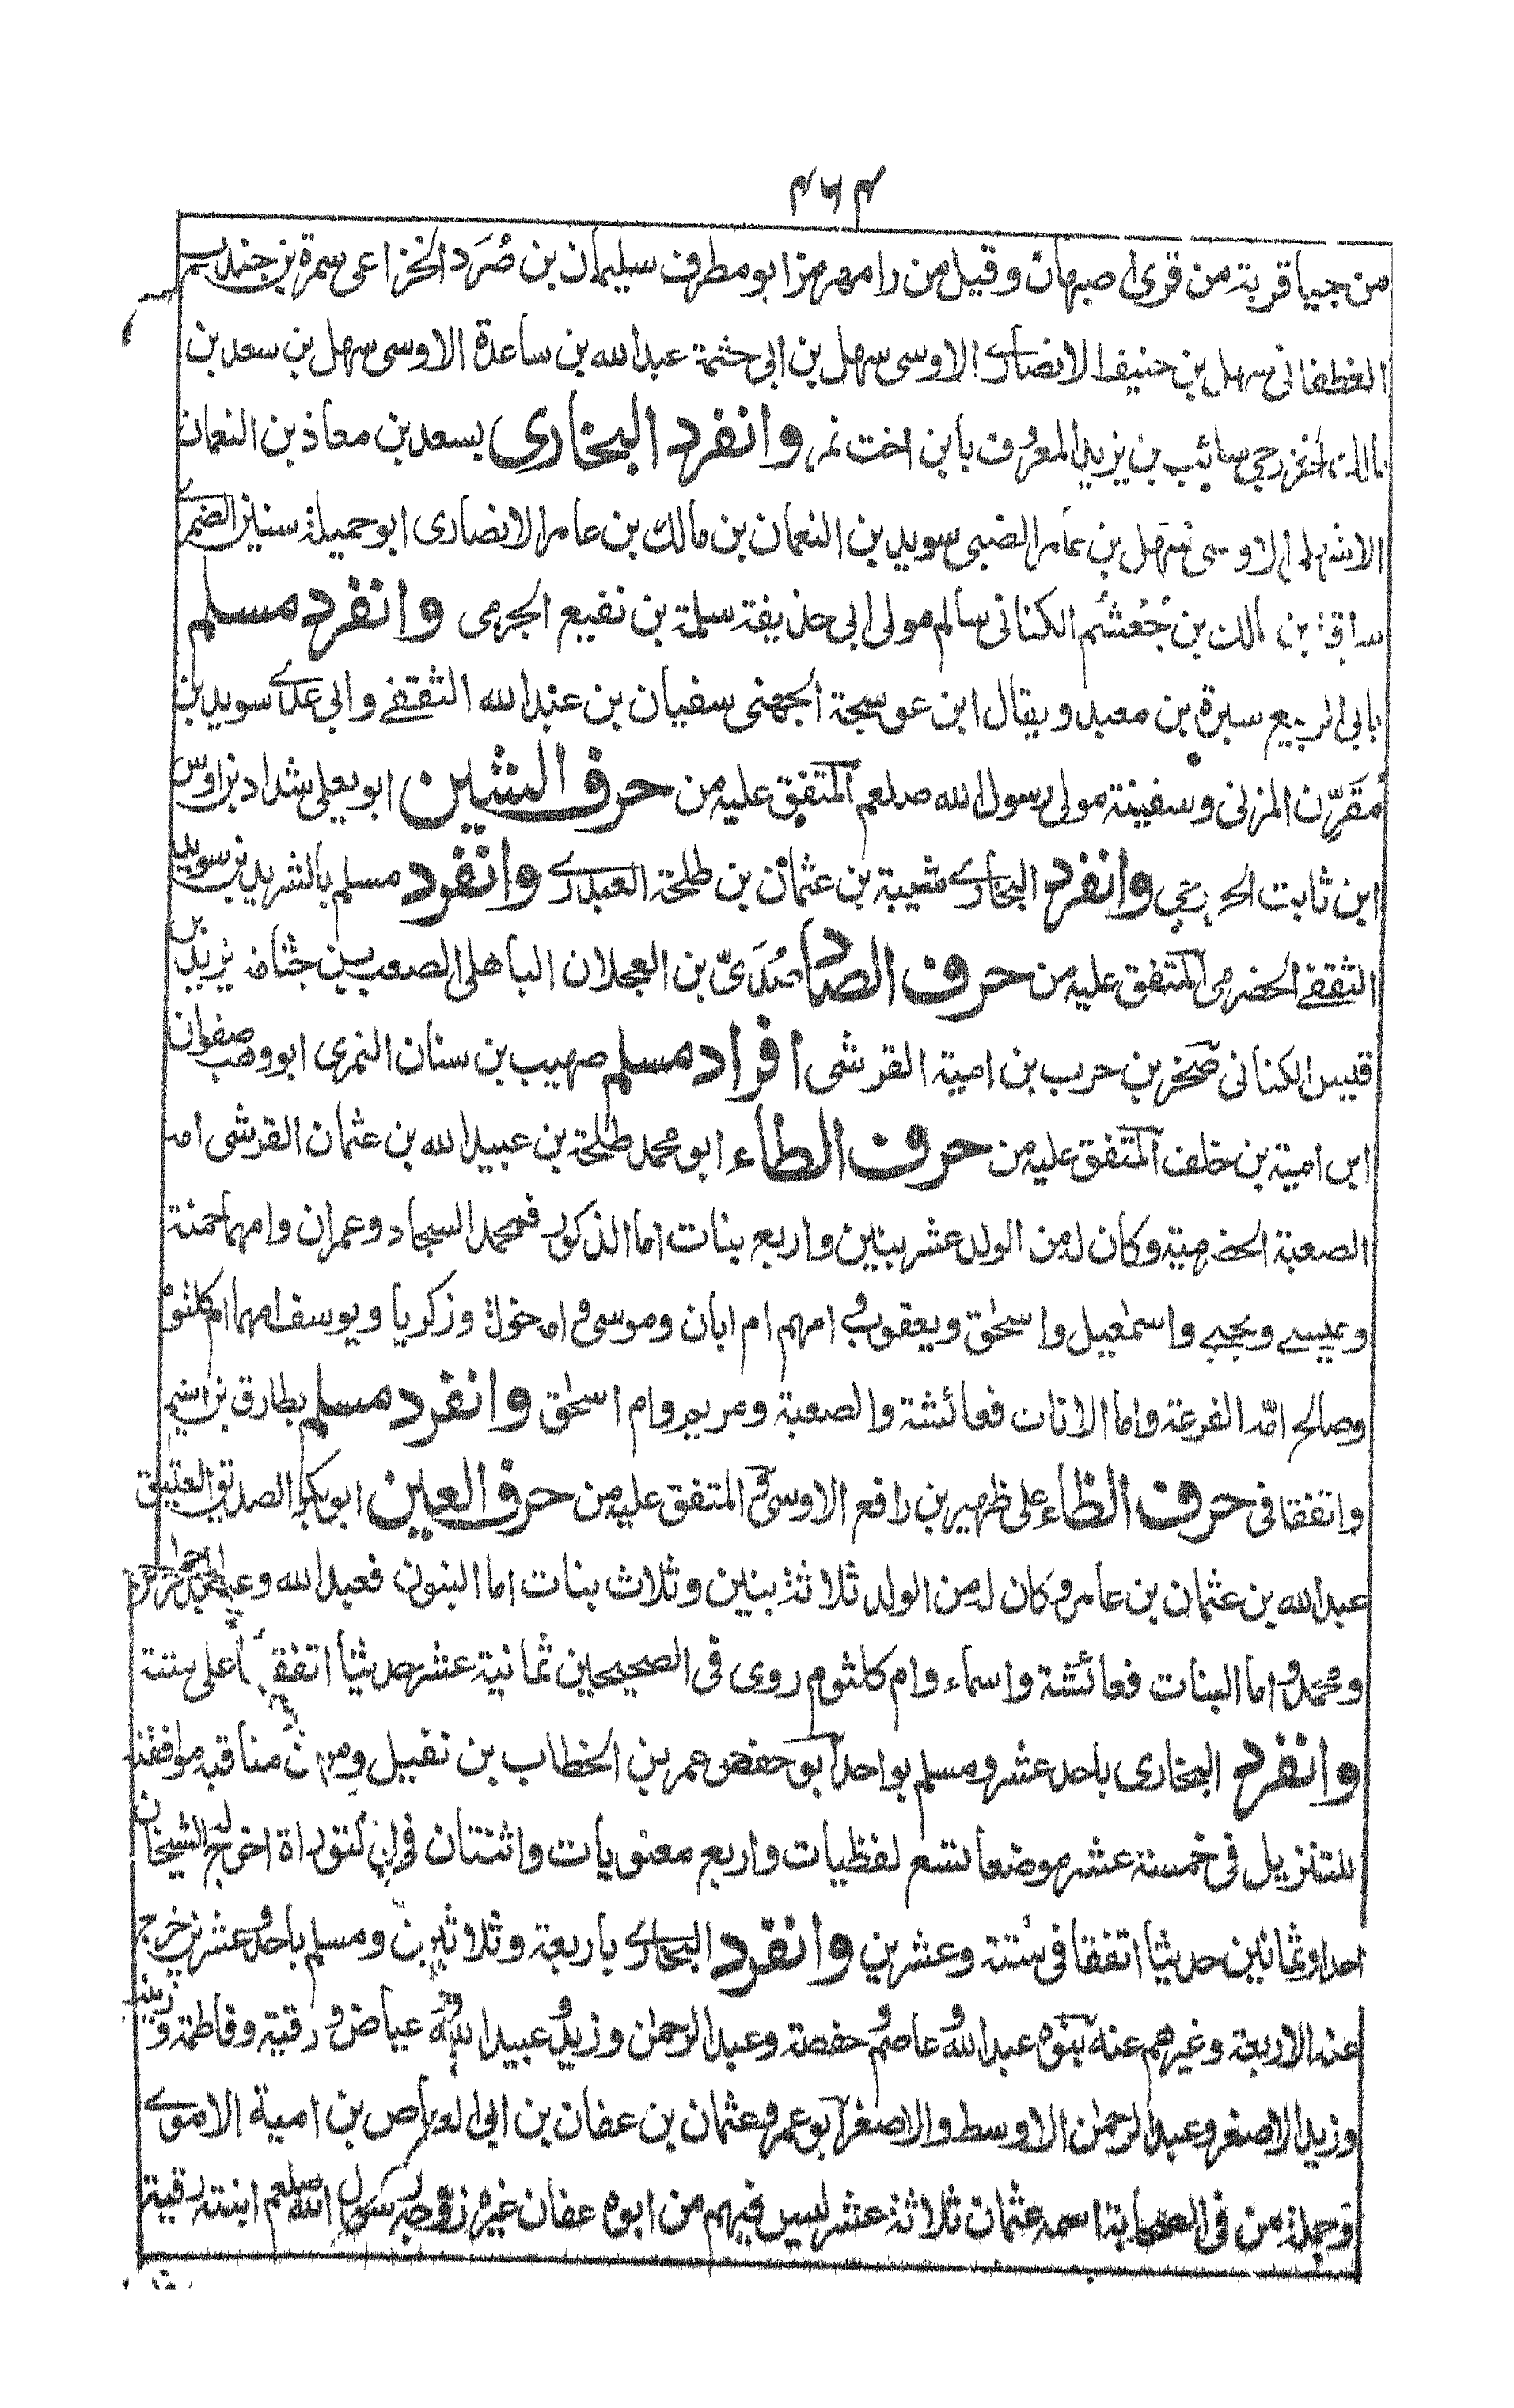 ۴۶۴
من جيا قرية من قرى اصبهان وقيل من رامهرمز ابو مطرف سليمان بن صُرَد الخزاعى سمرة بن جندب
الغطفانى سهل بن حنيف الانصارى الاوسى سهل بن ابى حثمة عبد الله بن ساعدة الاوسى سهل بن سعد بن
مالك الخزرجى سائب بن يزيد المعروف بابن اخت نمر وانفرد البخارى بسعد بن معاذ بن النعمان
الاشهلى الاوسى سهل بن عامر الضبى سويد بن النعمان بن مالك بن عامر الانصارى ابو حميلة سنين الضمرى
سراقة بن مالك بن جُعْشُم الكنانى سالم مولى ابى حذيفة سلمة بن نفيع الجرمى وانفرد مسلم
بابى الربيع سبرة بن معبد ويقال ابن عوسجة الجهنى سفيان بن عبد الله الثقفى وابى عدى سويد بن
مُقَرِّن المزنى وسفينة مولى رسول الله صلعم المتفق عليه من حرف الشين ابو يعلى شداد بن اوس
ابن ثابت الخزرجى وانفرد البخارى شيبة بن عثمان بن طلحة العبدرى وانفرد مسلم بالشريد بن سويد
الثقفى الحضرمى المتفق عليه من حرف الصاد صُدَىّ بن العجلان الباهلى الصعب بن جثامة بن يزيد بن
قيس الكنانى صخر بن حرب بن امية القرشى افراد مسلم صهيب بن سنان النمرى ابو وهب صفوان
ابن امية بن خلف المتفق عليه من حرف الطاء ابو محمد طلحة بن عبيد الله بن عثمان القرشى امه
الصعبة الحضرمية وكان له من الولد عشر بنين واربع بنات اما الذكور فمحمد السجاد وعمران وامهما حمنة
وعيسى ويحيى واسمعيل واسحق ويعقوب و امهم ام ابان وموسى و امه خولة وزكريا ويوسف امهما ام كلثوم
وصالح امّه الفرعة واما الاناث فعائشة والصعبة ومريم وام اسحق وانفرد مسلم بطارق بن اشيم
واتفقا فى حرف الظاء على ظهير بن رافع الاوسى و المتفق عليه من حرف العين ابو بكر الصديق العتيق
عبد الله بن عثمان بن عامر وكان له من الولد ثلاثة بنين وثلاث بنات اما البنون فعبد الله وعبد الرحمن
ومحمد و اما البنات فعائشة واسماء وام كلثوم روى فى الصحيحين ثمانية عشر حديثا اتفقا على ستة
وانفرد البخارى باحد عشر ومسلم بواحد ابو حفص عمر بن الخطاب بن نفيل ومن مناقبه موافقته
للتنزيل فى خمسة عشر موضعا تسع لفظيات واربع معنويات واثنتان فى التوراة اخرج له الشيخان
احدا وثمانين حديثا اتفقا فى ستة وعشرين وانفرد البخارى باربعة وثلاثين ومسلم باحد وعشرين خرج
عنه الاربعة وغيرهم عنه بنوه عبد الله و عاصم و حفصة وعبد الرحمن وزيد و عبيد الله و عياض و رقية وفاطمة وزينب
وزيد الاصغر وعبد الرحمن الاوسط والاصغر ابو عمرو عثمان بن عفان بن ابى العاص بن امية الاموى
وجملة من فى الصحابة اسمه عثمان ثلاثة عشر ليس فيهم من ابوه عفان غيره زوجه رسول الله صلعم ابنته رقية